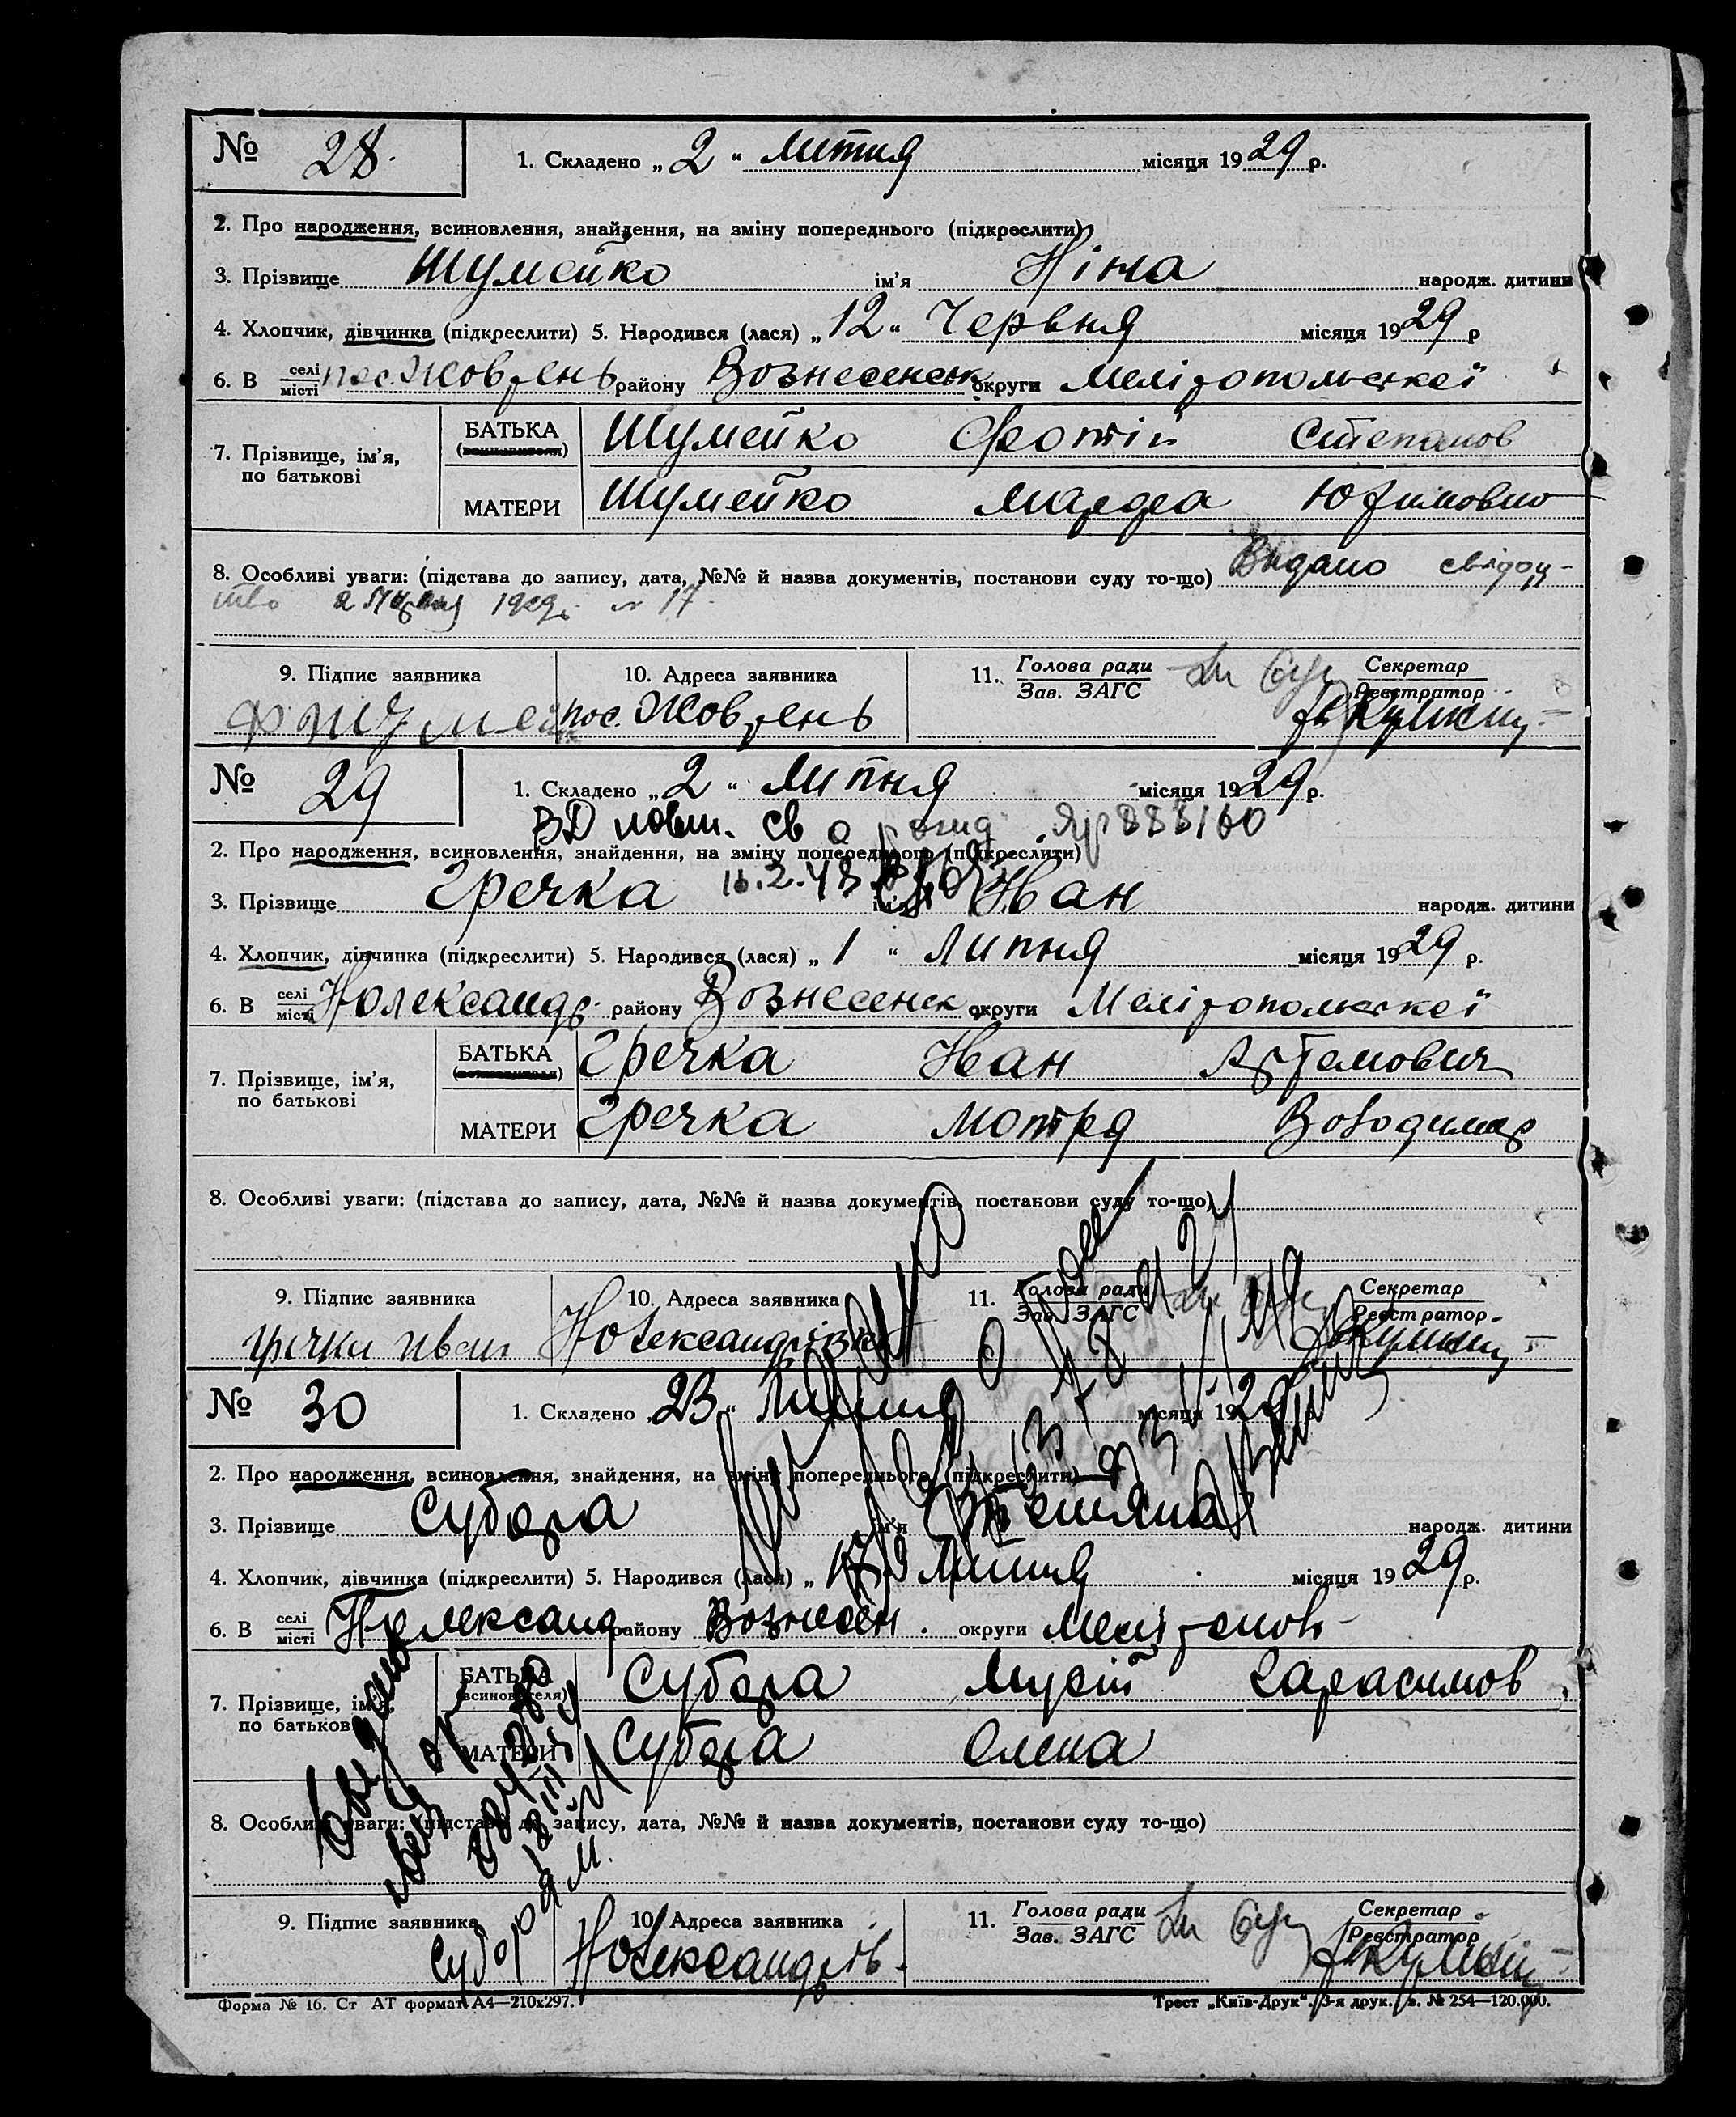 № 28. 1. Складено „2“ Липня місяця 1929 р.
2. Про народження, всиновлення, знайдення, на зміну попереднього (підкреслити)
3. Прізвище Шумейко ім'я Ніна народж. дитини
4. Хлопчик, дівчинка (підкреслити) 5. Народився (лася) „12“ Червня місяця 1929 р
6. В селі місті пос. Жовтень району Вознесенськ округи Мелітопольської
7. Прізвище, ім'я, по батькові
БАТЬКА (всиновителя) Шумейко Фотій Степанов
МАТЕРИ Шумейко Юхимовно
8. Особливі уваги: (підстава до запису, дата, №№ й назва документів, постанови суду то-що) Видано свідоц-
тво 2 Липня 1929 р. № 17
9. Підпис заявника 10. Адреса заявника 11. Голова ради Зав. ЗАГС Секретар Реєстратор
Ф Шумейко пос. Жовтень
№ 29 1. Складено „2“ Липня місяця 1929 р.
ВД повт. св о рожд. 
2. Про народження, всиновлення, знайдення, на зміну попереднього (підкреслити)
3. Прізвище Гречка ім'я Іван народж. дитини
4. Хлопчик, дівчинка (підкреслити) 5. Народився (лася) „1“ Липня місяця 1929 р.
6. В селі місті Нолександр. району Вознесенск округи Мелітопольської
7. Прізвище, ім'я, по батькові
БАТЬКА (всиновителя) Гречка Іван Артемович
МАТЕРИ Гречка Мотря Володимир
8. Особливі уваги: (підстава до запису, дата, №№ й назва документів, постанови суду то-що)
9. Підпис заявника 10. Адреса заявника 11. Голова ради Зав. ЗАГС Секретар Реєстратор
гречка иван Нолександрівка
№ 30 1. Складено „23“ Липня місяця 1929 р.
2. Про народження, всиновлення, знайдення, на зміну попереднього (підкреслити)
3. Прізвище Субота ім'я Тетяна народж. дитини
4. Хлопчик, дівчинка (підкреслити) 5. Народився (лася) „17“ Липня місяця 1929 р.
6. В селі місті Нолександр району Вознесен. округи Мелітополь
7. Прізвище, ім'я, по батькові
БАТЬКА (всиновителя) Субота Мусій Гарасимов
МАТЕРИ Субота Олена
8. Особливі уваги: (підстава до запису, дата, №№ й назва документів, постанови суду то-що)
9. Підпис заявника 10. Адреса заявника 11. Голова ради Зав. ЗАГС Секретар Реєстратор
Нолександрів.
Форма № 16. Ст АТ формат А4—210х297. Трест „Київ-Друк“. 3-я друк. з. № 254—120.000.